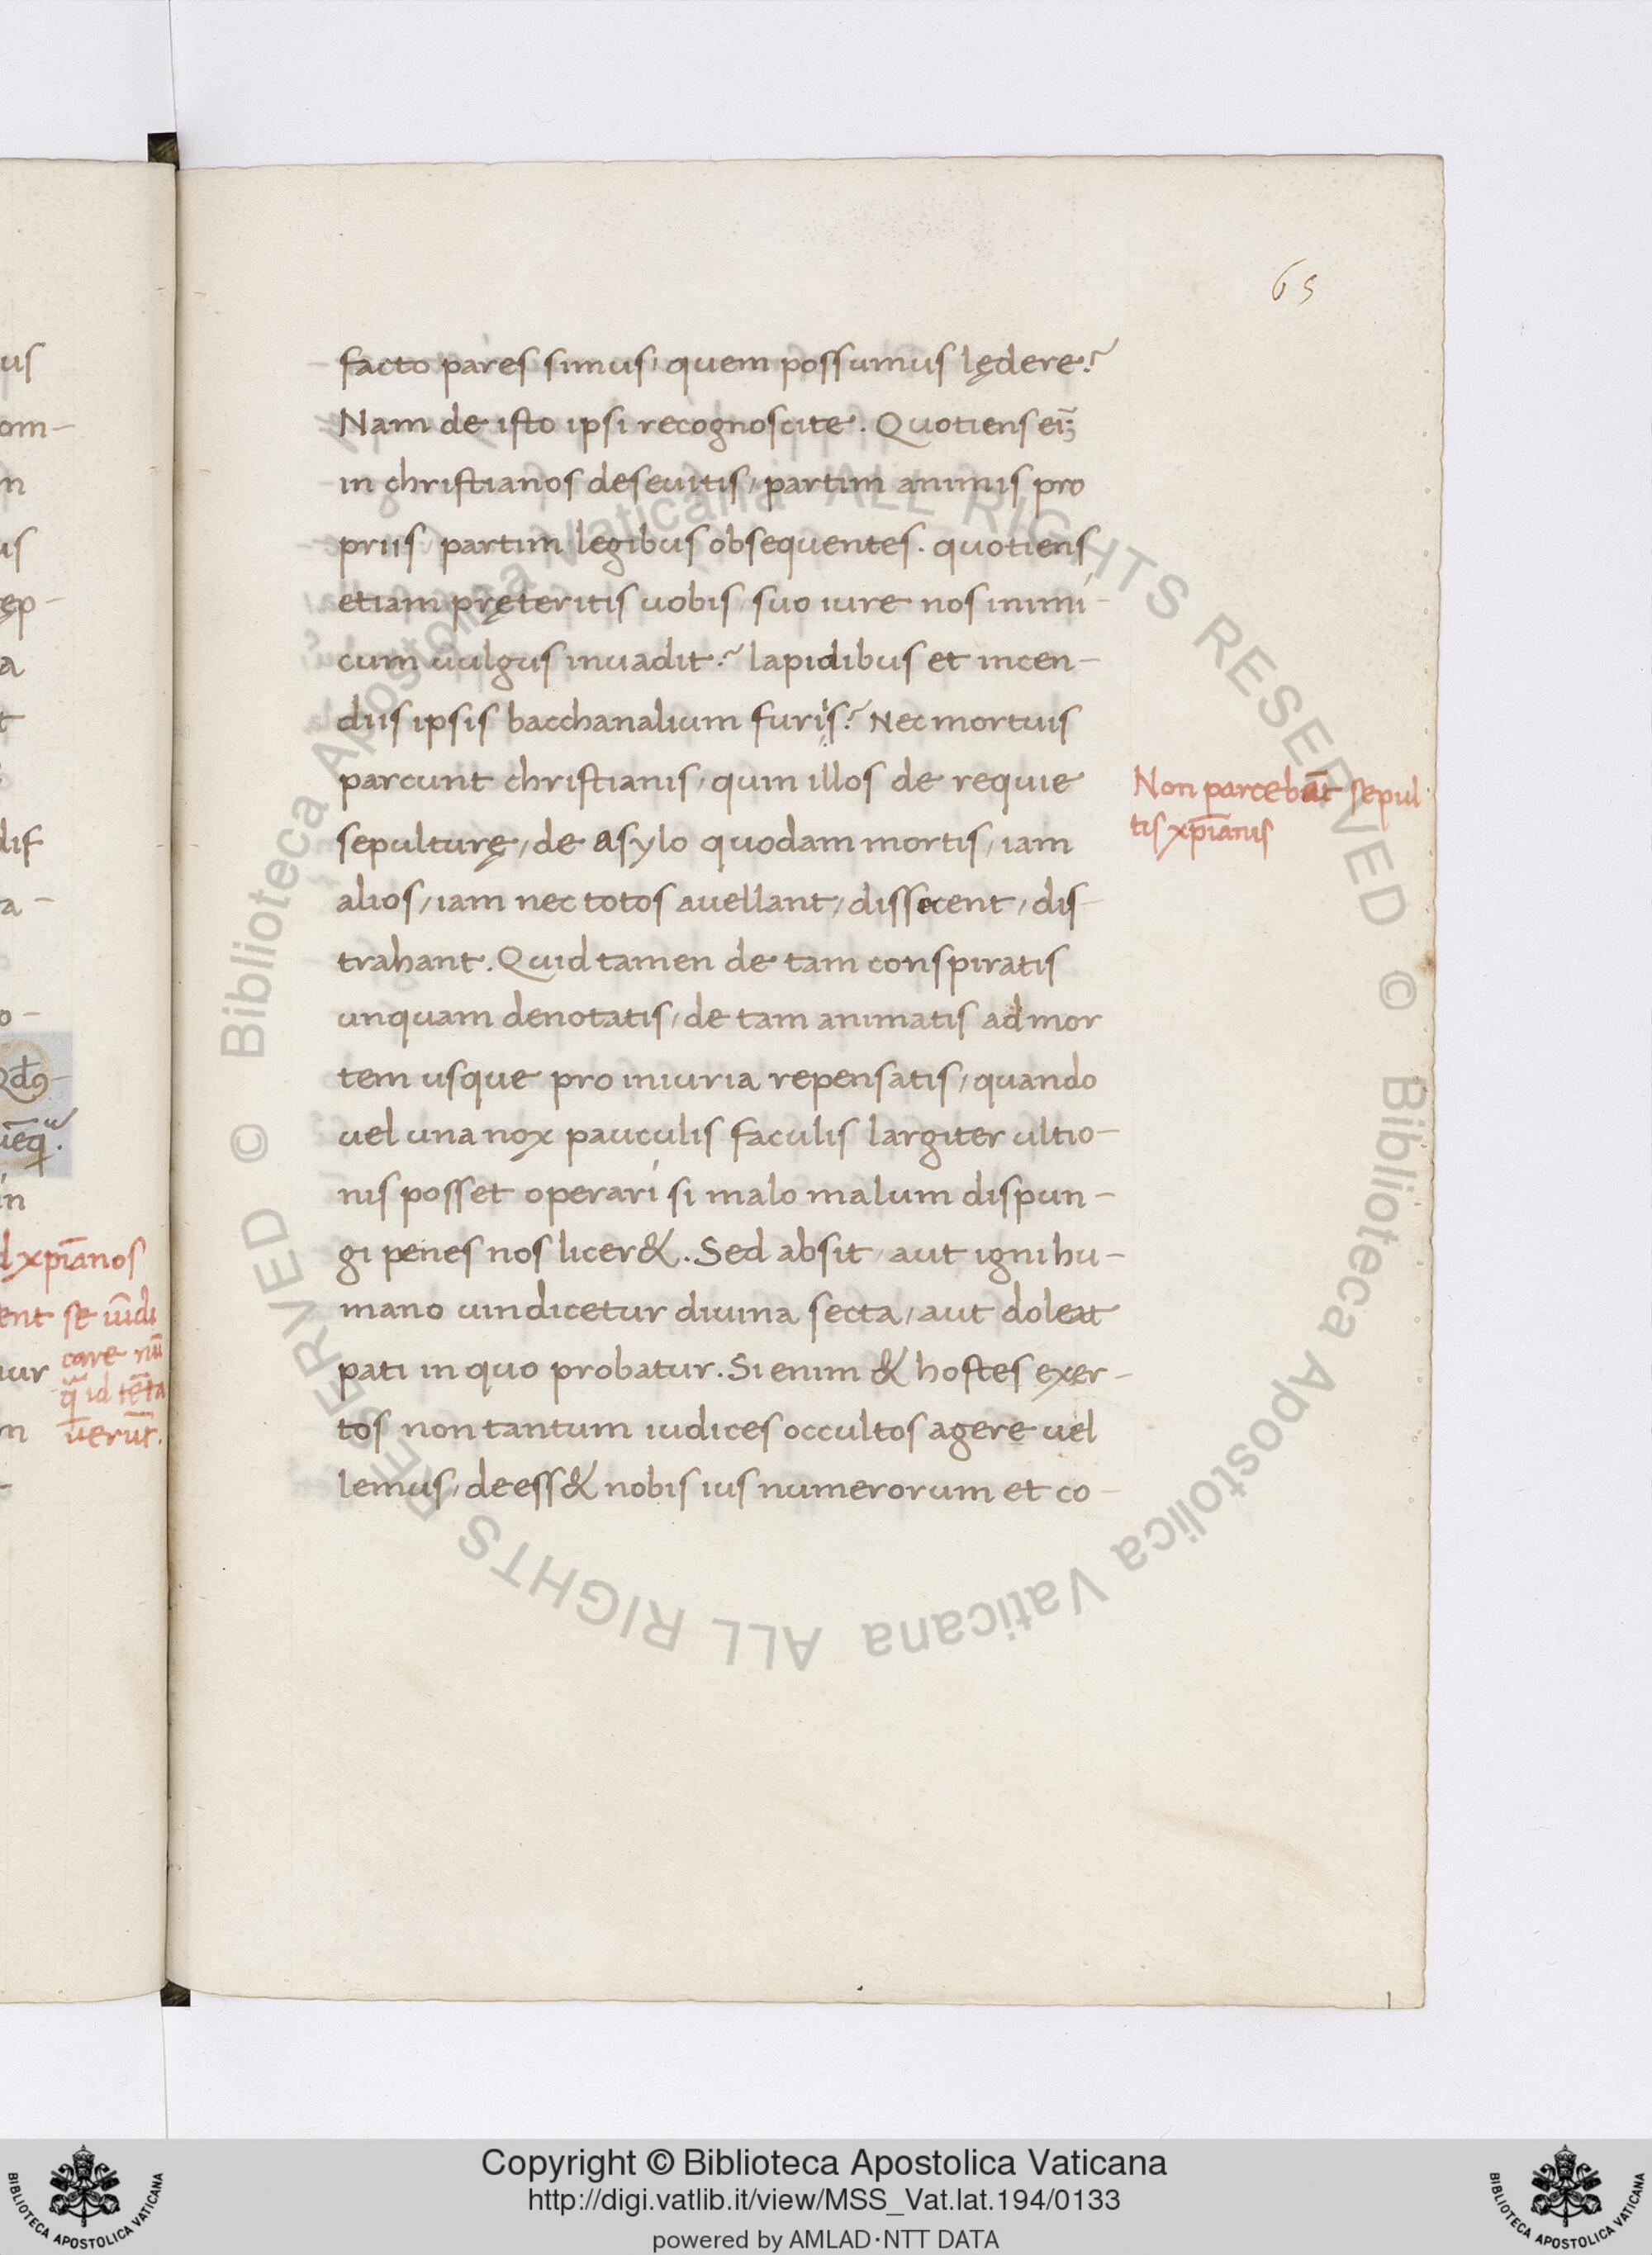 65
facto pares simus, quem possumus lędere?
Nam de isto ipsi recognoscite. Quotiens
in christianos deseuitis, partim animis pro
priis, partim legibus obsequentes. quotiens
etiam pręteritis uobis suo iure nos inimi-
cum uulgus inuadit? lapidibus et incen-
diis ipsis bacchanalium furiis? Nec mortuis
parcunt christianis, qum illos de requie
sepulturę, de asylo quodam mortis, iam
alios, iam nec totos auellant, dissecent, dis
trahant. Quid tamen de tam conspiratis
unquam denotatis, de tam animatis ad mor
tem usque pro iniuria repensatis, quando
uel una nox pauculis faculis largiter ultio-
nis posset operari si malo malum dispun-
gi penes nos licer&. Sed absit, aut igni hu-
mano uindicetur diuina secta, aut doleat
pati in quo probatur. Si enim & hostes exer-
tos non tantum iudices occultos agere uel
lemus, deess& nobis ius numerorum et co-
Non parcebāt sepul
tis xp̄ianis
us
om-
n
us
ęp-
a
t
dif
a-
o-
in
d xp̄ianos
ent se
care
ur
n
Biblioteca Apostolica Vaticana ALL RIGHTS RESERVED ©
Biblioteca Apostolica Vaticana ALL RIGHTS RESERVED ©
BIBLIOTECA APOSTOLICA VATICANA
Copyright © Biblioteca Apostolica Vaticana
http://digi.vatlib.it/view/MSS_Vat.lat.194/0133
powered by AMLAD·NTT DATA
BIBLIOTECA APOSTOLICA VATICANA